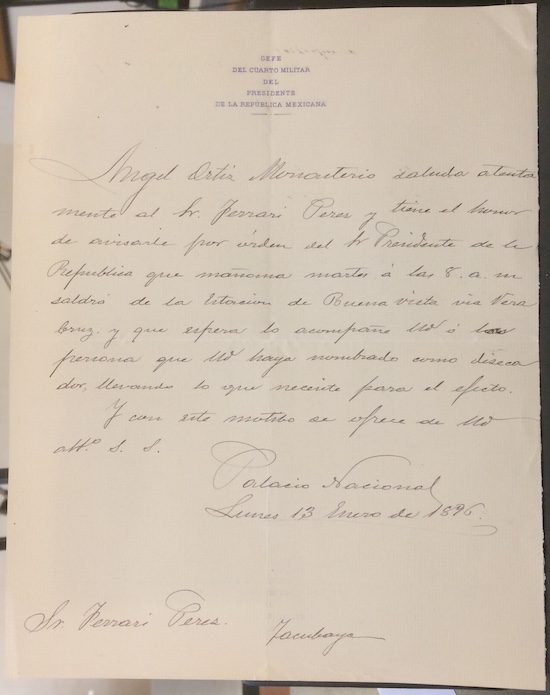 GEFE
DEL CUARTO MILITAR
DEL
PRESIDENTE
DE LA REPÚBLICA MEXICANA
Angel Ortiz Monasterio saluda atenta
mente al Sr. Ferrari Peres y tiene el honor
de avisarle por órden del Sr Presidente de la
Republica que mañana martes á las 8. a. m
saldrá de la Estacion de Buena vista via Vera
Cruz. y que espera lo acompañe Ud ó la
persona que Ud haya nombrado como diseca
dor, llevando lo que necesite para el efecto.
Y con este motibo se ofrece de Ud
att.º S. S.
Palacio Nacional
Lunes 13 Enero de 1896.
Sr. Ferrari Peres.
Tacubaya